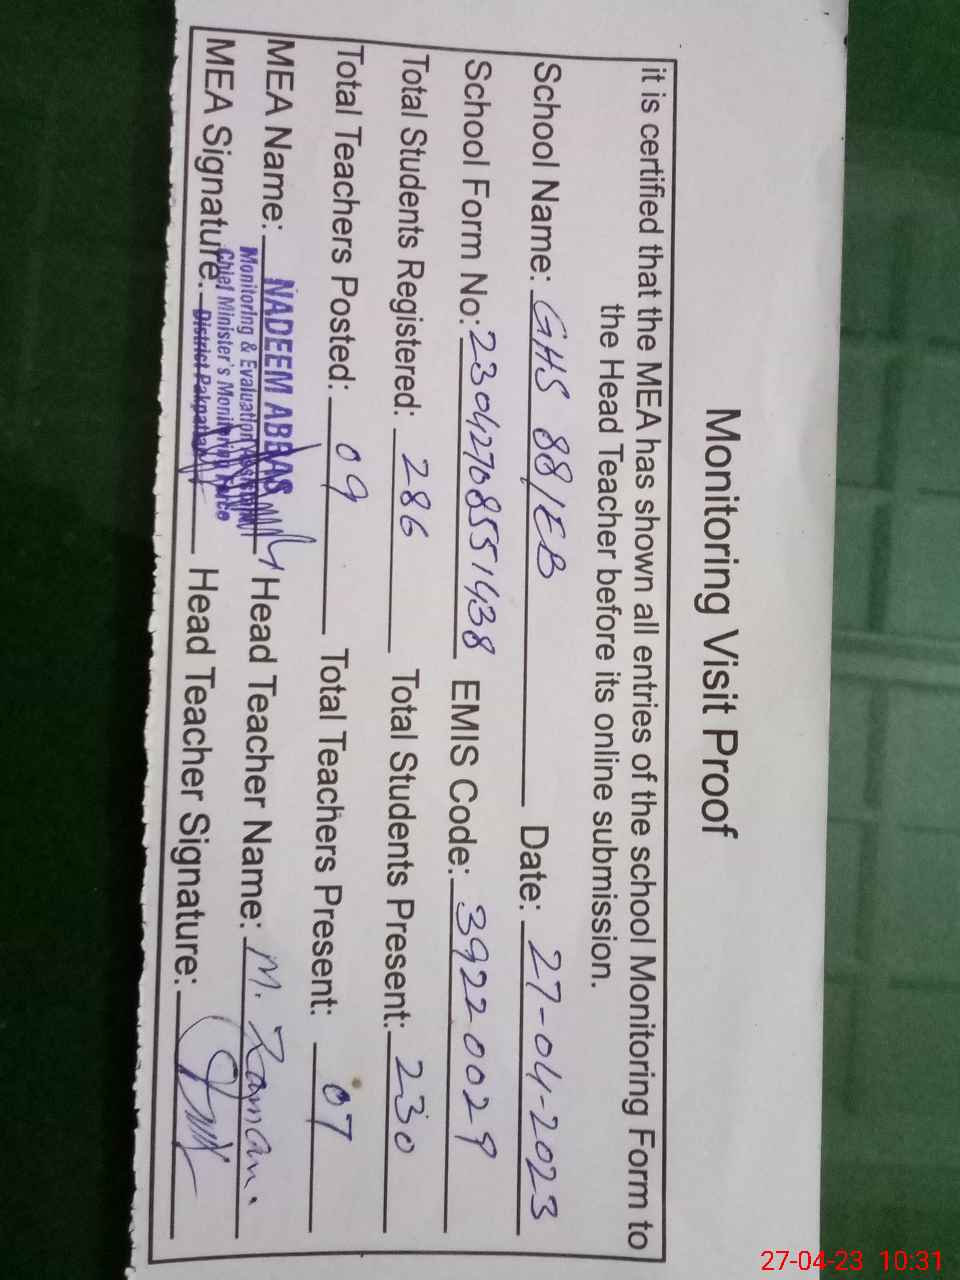 Monitoring Visit Proof
it is certified that the MEA has shown all entries of the school Monitoring Form to
the Head Teacher before its online submission.
School Name: GHS 88/EB Date: 27-04-2023
School Form No: 23042708551438 EMIS Code: 39220029
Total Students Registered: 286 Total Students Present: 230
Total Teachers Posted: 09 Total Teachers Present: 07
MEA Name: NADEEM ABBAS Head Teacher Name: M. Zaman.
Monitoring & Evaluation Assistant
Chief Minister's Monitoring Force
MEA Signature: District Pakpattan Head Teacher Signature:
27-04-23 10:31